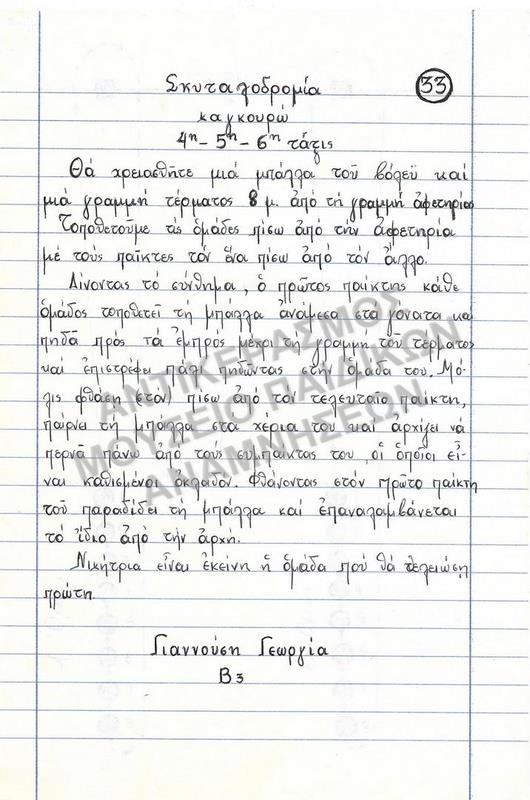 Σκυταλοδρομία
33
καγκουρώ
4η - 5η - 6η τάξις
Θά χρειασθῆτε μιά μπάλλα τοῦ βόλεϋ καί
μιά γραμμή τέρματος 8 μ. ἀπό τή γραμμή ἀφετηρίας
Τοποθετοῦμε τίς ὁμάδες πίσω ἀπό τήν ἀφετηρία
μέ τούς παίκτες τόν ἕνα πίσω ἀπό τόν ἄλλο.
Δίνοντας τό σύνθημα, ὁ πρῶτος παίκτης κάθε
ὁμάδος τοποθετεῖ τή μπάλλα ἀνάμεσα στά γόνατα καί
πηδᾶ πρός τά ἐμπρός μέχρι τή γραμμή τοῦ τέρματος
καί ἐπιστρέφει πάλι πηδώντας στήν ὁμάδα του. Μό-
λις φθάση (στόν) πίσω ἀπό τόν τελευταῖο παίκτη,
παίρνει τή μπάλλα στά χέρια του καί ἀρχίζει νά
περνᾶ πάνω ἀπό τούς συμπαίκτας του, οἱ ὁποῖοι εἶ-
ναι καθισμένοι ὀκλαδόν. Φθάνοντας στόν πρῶτο παίκτη
τοῦ παραδίδει τή μπάλλα καί ἐπαναλαμβάνεται
τό ἴδιο ἀπό τήν ἀρχή.
Νικήτρια εἶναι ἐκείνη ἡ ὁμάδα πού θά τελειώση
πρώτη.
Γιαννούση Γεωργία
Β3
ΑΝΤΙΚΕΡΑΣΜΟΣ
ΜΟΥΣΕΙΟ ΠΑΙΔΙΚΩΝ
ΑΝΑΜΝΗΣΕΩΝ